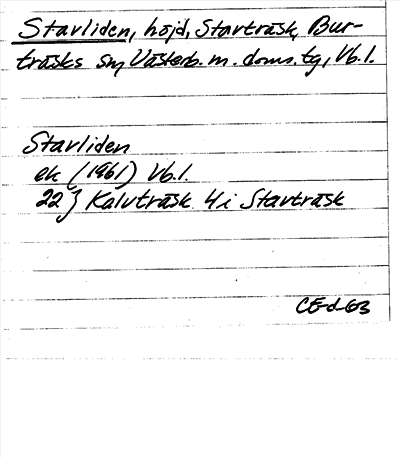 Stavliden, höjd, Stavträsk, Bur-
träsks sn, Västerb. m. doms. tg, Vb. l.
Stavliden
ek (1961) Vb. l.
22 J Kalvträsk 4 i Stavträsk
CE-d-63